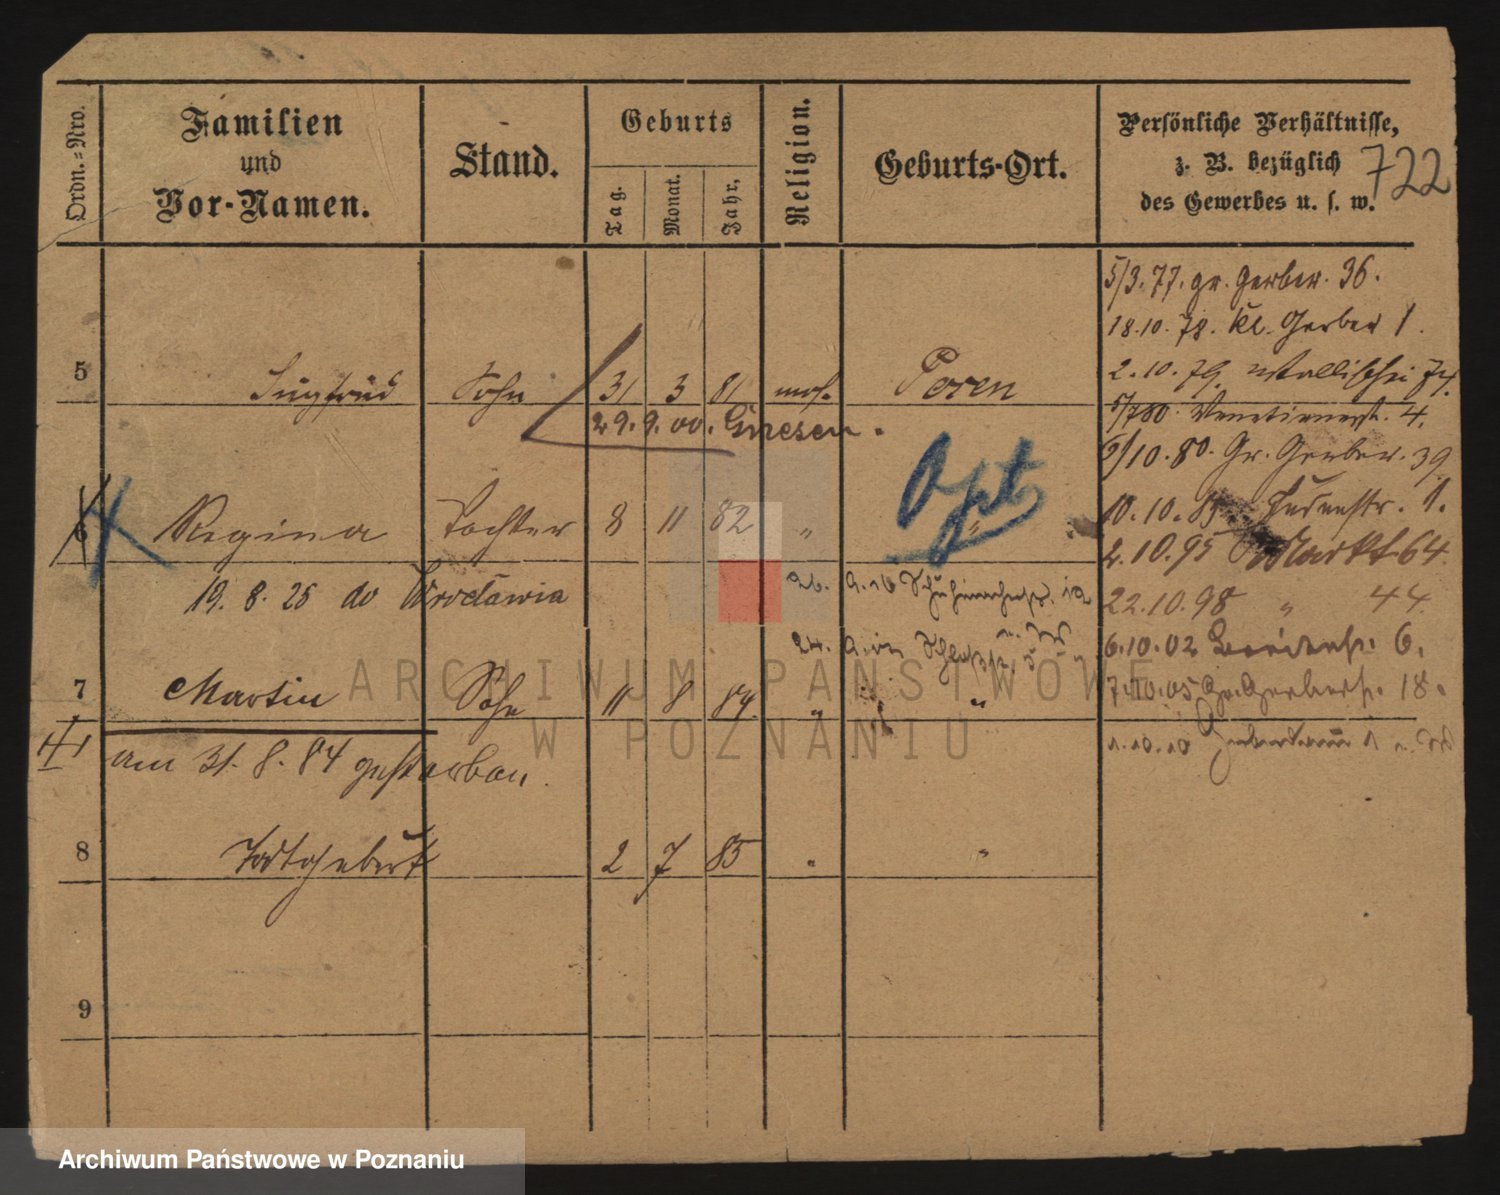 Ordn.=Nro.
Familien
und
Vor-Namen.
Stand.
Geburts
Tag.
Monat.
Jahr,
Religion.
Geburts-Ort.
Persönliche Verhältnisse,
z. B. bezüglich
des Gewerbes u. s. w.
722
5/3. 77. gr. Gerber. 36.
18.10. 78. Kl. Gerber 1.
2. 10. 79. Wallischei 74.
5/7 80. Venetianerst. 4.
9/10. 80. Gr. Gerber. 39
5 Siegfried Sohn 31 3 81 mos. Posen
29. 9. 00. Gnesen.
Opt
6 Regina Tochter 8 11 82 " "
10. 10. Judenstr. 1.
2. 10. 95 Markt 64.
19. 8. 25 do Wrocławia
26. 9. 16 12
22. 10. 98 " 44.
24.
6. 10. 02 6.
7 Martin Sohn 11 8 84 " "
7. 10. 05 Gr. Gerberst. 18.
am 31. 8. 84 gestorben.
1. 10. 10 1
8 Todtgeburt 2 7 85 " "
9
ARCHIWUM PAŃSTWOWE
W POZNANIU
Archiwum Państwowe w Poznaniu